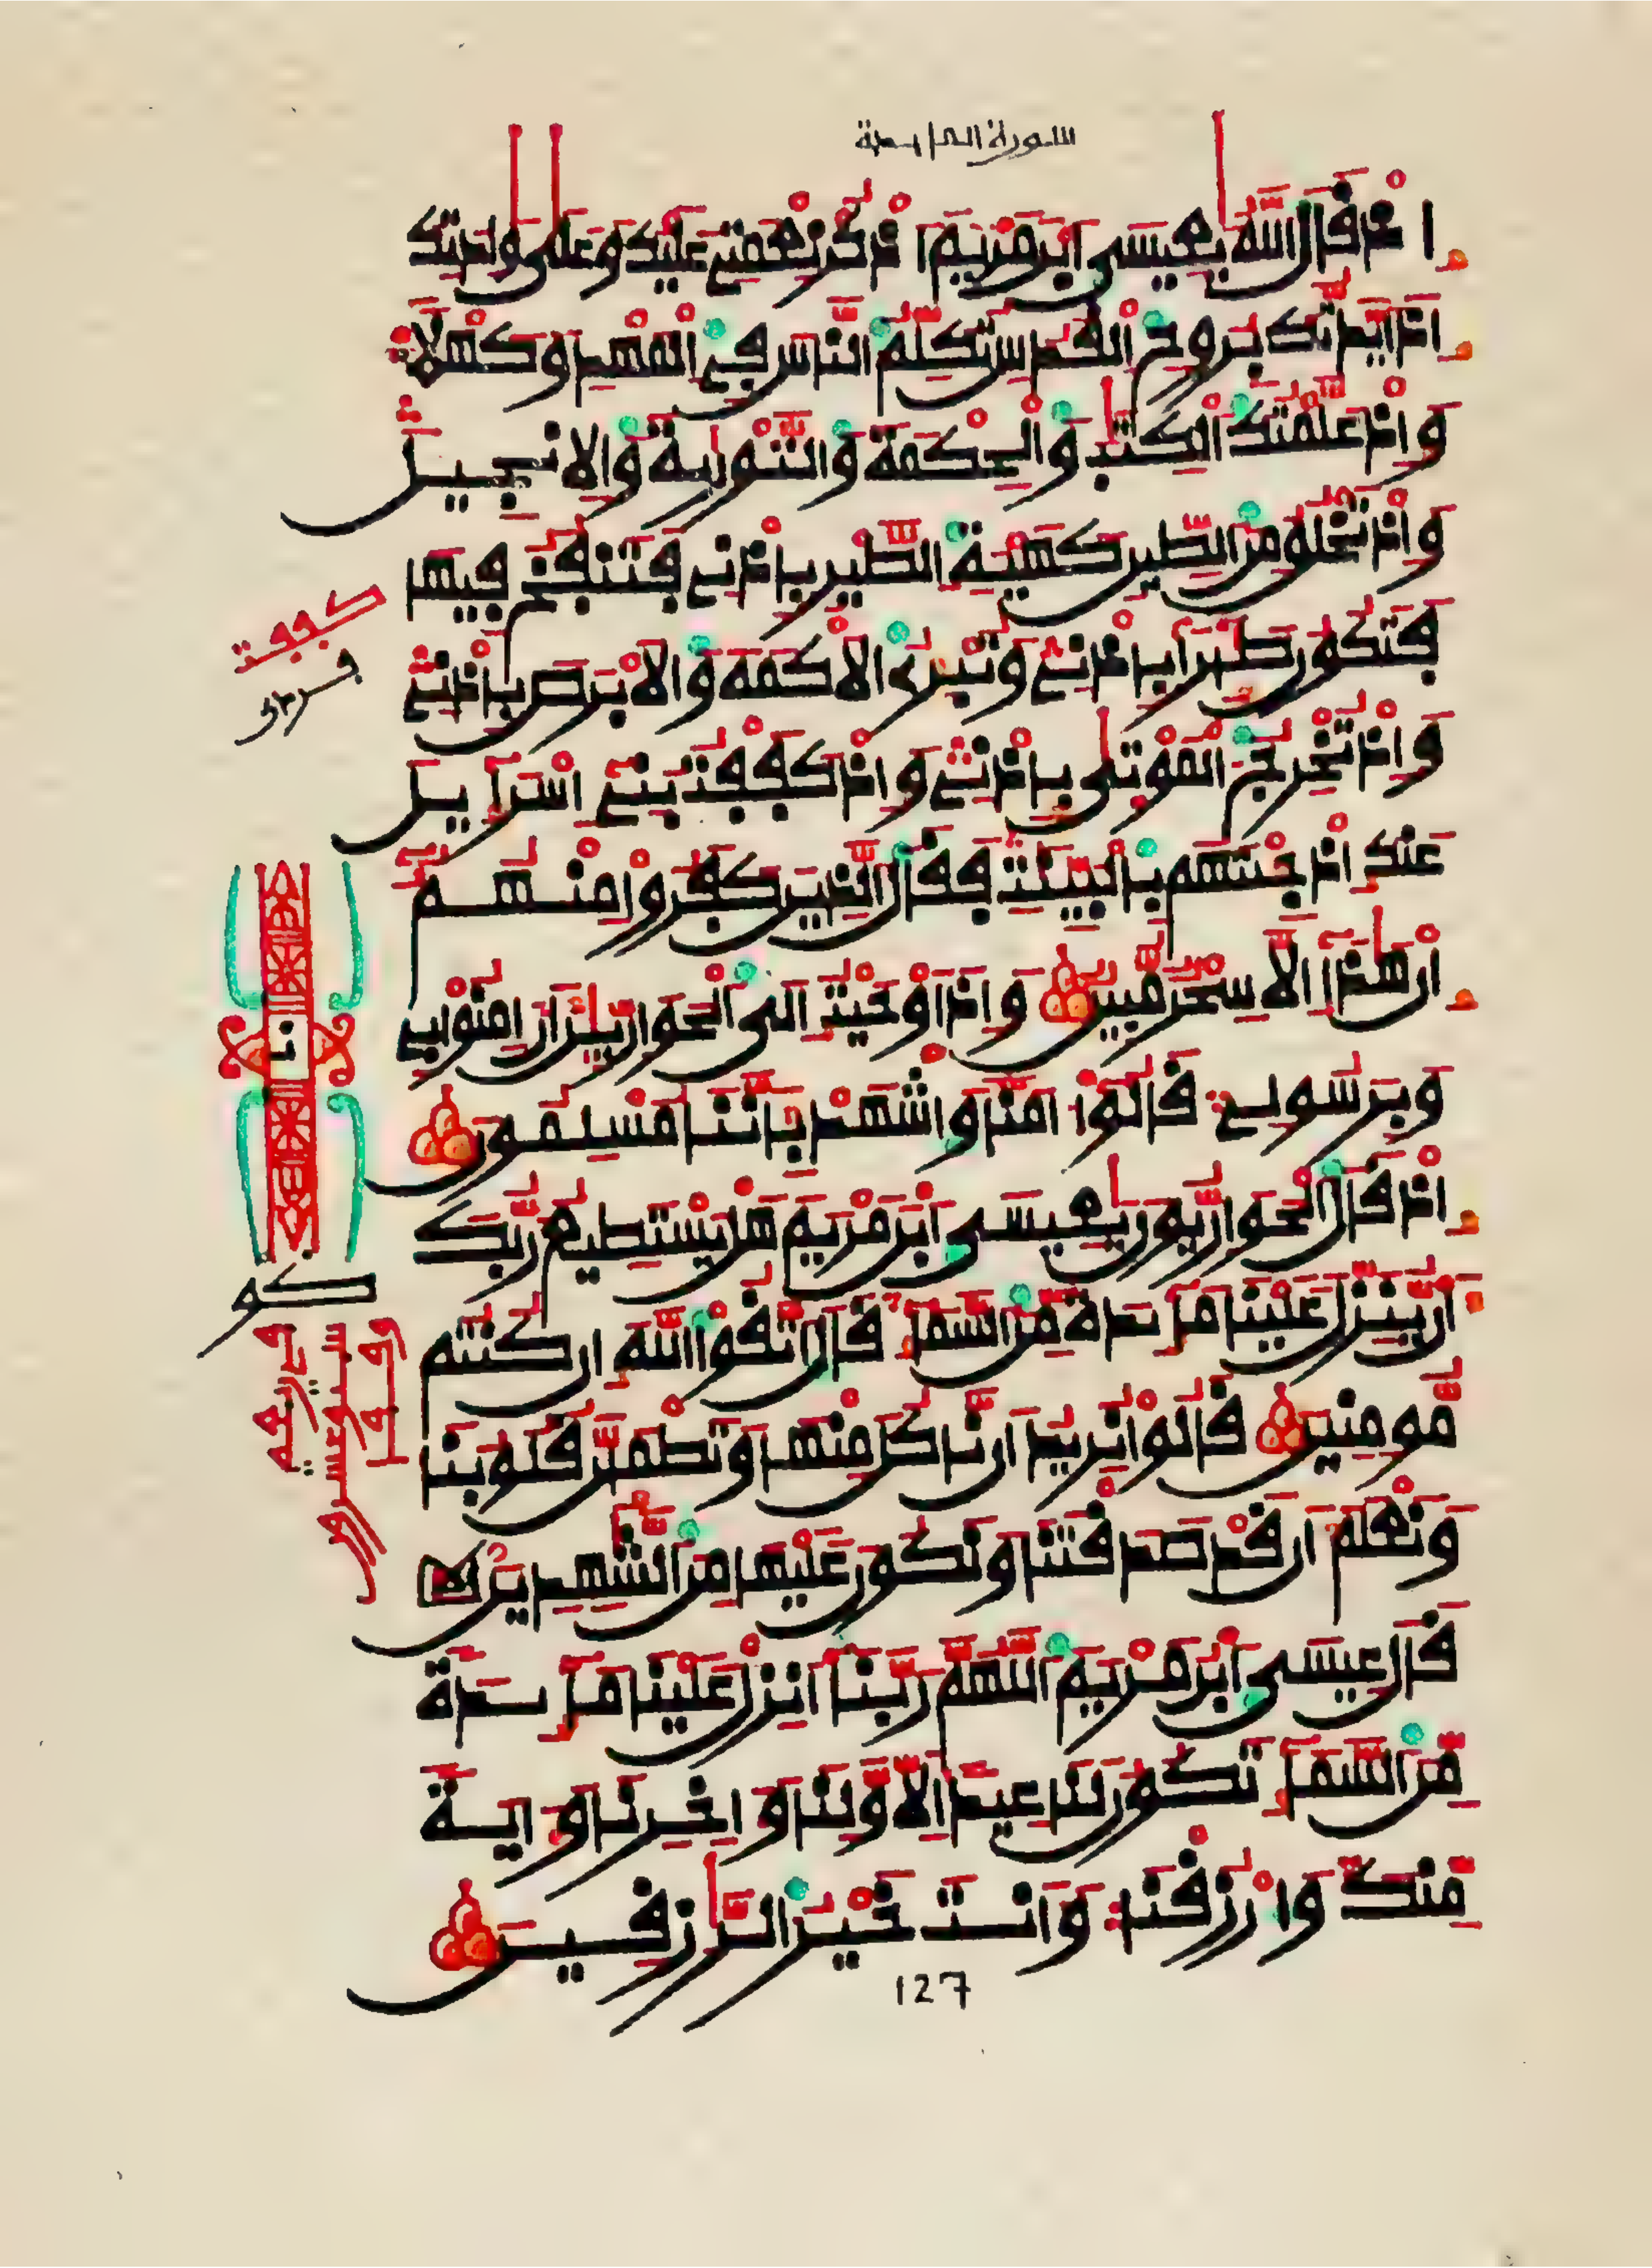 سورة المايدة
اذ قال الله يعيسى ابن مريم اذكر نعمتى عليك وعلى والدتك
اذ ايدتك بروح القدس تكلم الناس في المهد وكهلا
واذ علمتك الكتب والحكمة والتورية والانجيل
واذ تخلق من الطين كهيئة الطير باذنى فتنفخ فيها
فتكون طيرا باذنى وتبرئ الاكمه والابرص باذنى
واذ تخرج الموتى باذنى واذ كففت بنى اسراءيل
عنك اذ جئتهم بالبينت فقال الذين كفروا منهم
ان هذا الا سحر مبين واذ اوحيت الى الحوارين ان امنوا بى
وبرسولى قالوا امنا واشهد باننا مسلمون
اذ قال الحواريون يعيسى ابن مريم هل يستطيع ربك
ان ينزل علينا مايدة من السما قال اتقوا الله ان كنتم
مومنين قالوا نريد ان ناكل منها وتطمئن قلوبنا
ونعلم ان قد صدقتنا ونكون عليها من الشهدين
قال عيسى ابن مريم اللهم ربنا انزل علينا مايدة
من السما تكون لنا عيدا لاولنا واخرنا واية
منك وارزقنا وانت خير الرزقين
127
كففت